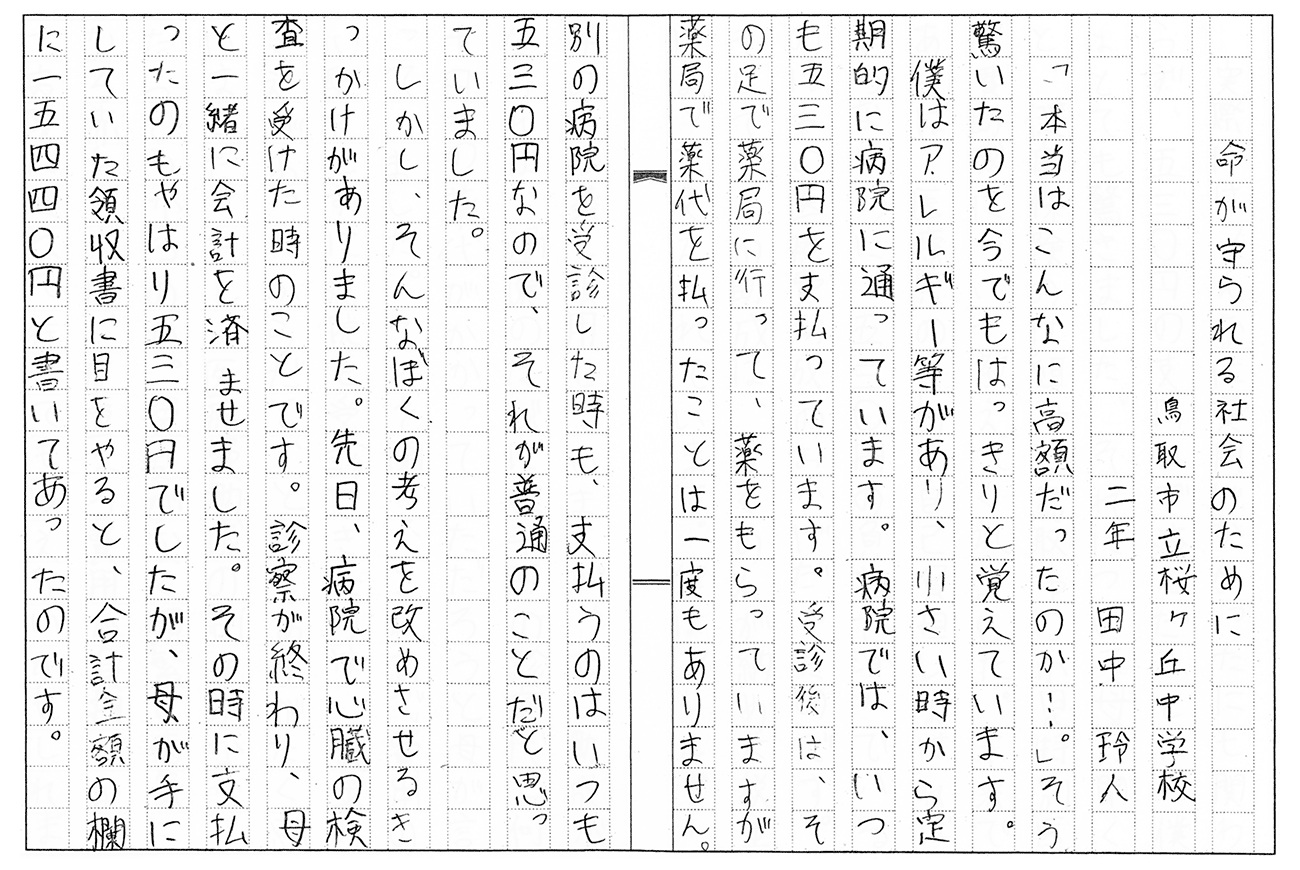 命が守られる社会のために
鳥取市立桜ヶ丘中学校
二年　田中　玲人
「本当はこんなに高額だったのか…。」そう
驚いたのを今でもはっきりと覚えています。
僕はアレルギー等があり、小さい時から定
期的に病院に通っています。病院では、いつ
も五三〇円を支払っています。受診後は、そ
の足で薬局に行って、薬をもらっていますが
薬局で薬代を払ったことは一度もありません。
別の病院を受診した時も、支払うのはいつも
五三〇円なので、それが普通のことだと思っ
ていました。
しかし、そんなぼくの考えを改めさせるき
っかけがありました。先日、病院で心臓の検
査を受けた時のことです。診察が終わり、母
と一緒に会計を済ませました。その時に支払
ったのもやはり五三〇円でしたが、母が手に
していた領収書に目をやると、合計金額の欄
に一五四四〇円と書いてあったのです。